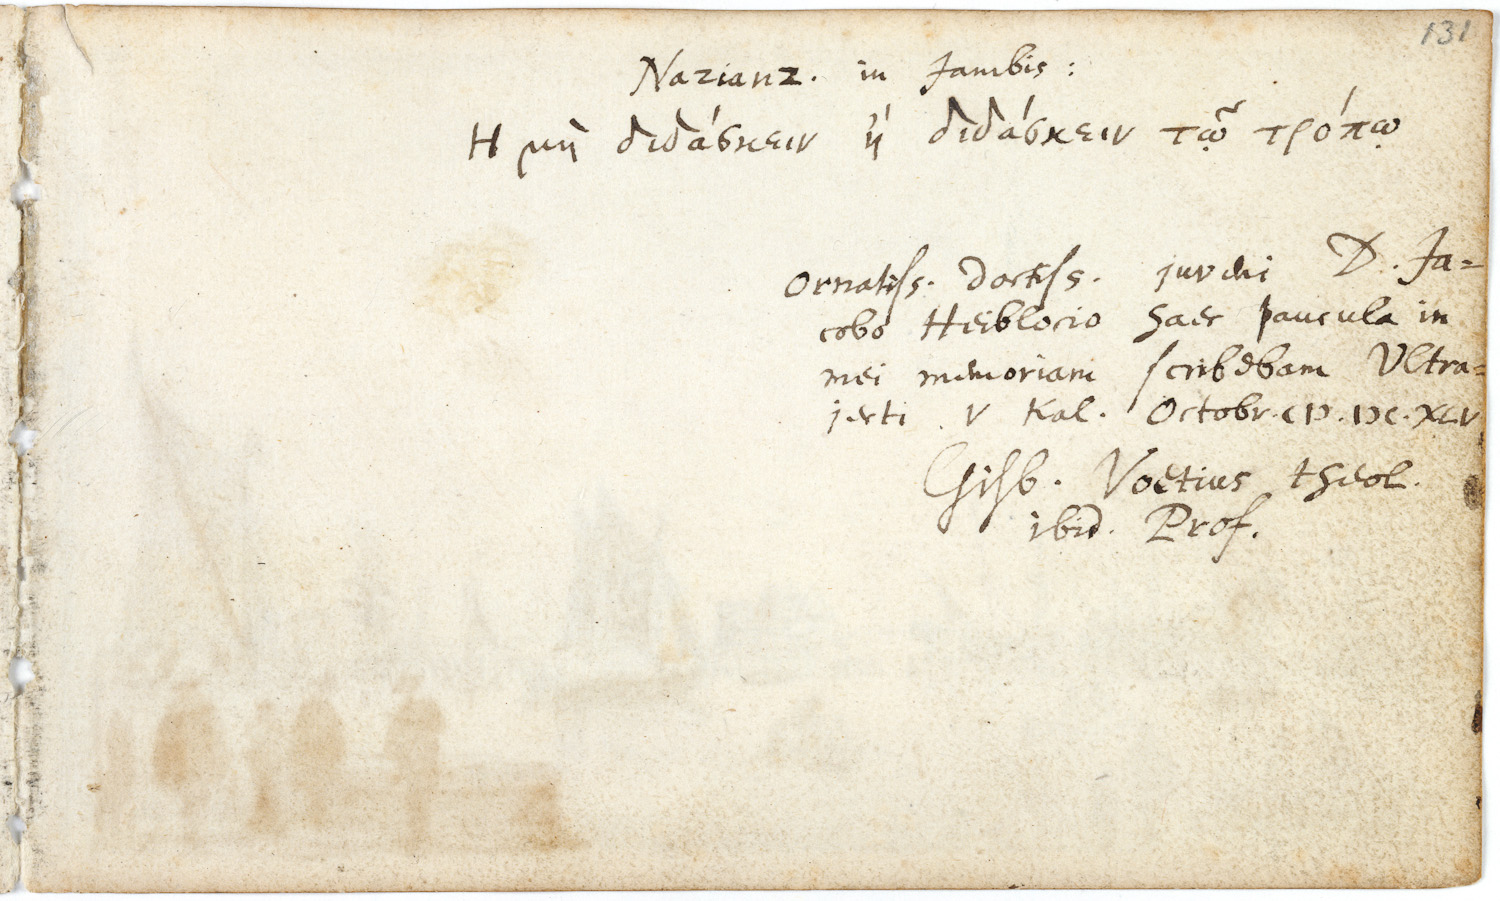 131
Nazianz. in Jambis:
Η μὴ διδάσκειν ἢ διδάσκειν τῷ τρόπῳ
Ornatiss. Doctiss. juveni D. Ja=
cobo Heiblocio haec paucula in
mei memoriam scribebam Ultra=
jecti V Kal. Octobr. CIƆ. IƆC. XLV
Gisb. Voetius theol.
ibid. Prof.